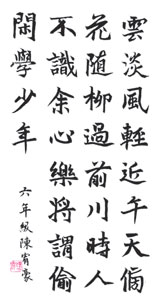 雲淡風輕近午天傍
花隨柳過前川時人
不識余心樂將謂偷
閑學少年
六年級陳宥豪